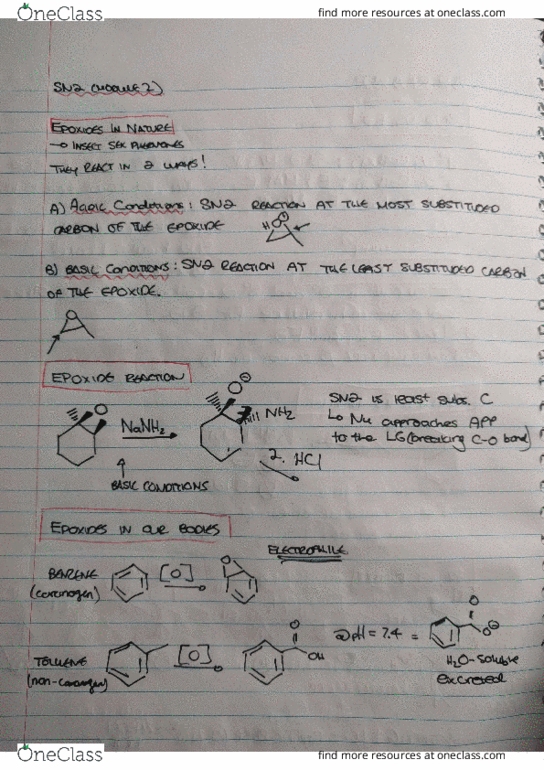 OneClass
find more resources at oneclass.com
SN2 (MODULE 2)
EPOXIDES IN NATURE
→ INSECT SEX PHEROMONES
THEY REACT IN 2 WAYS!
A) ACIDIC CONDITIONS: SN2 REACTION AT THE MOST SUBSTITUTED
CARBON OF THE EPOXIDE
H O ⊕
B) BASIC CONDITIONS: SN2 REACTION AT THE LEAST SUBSTITUTED CARBON
OF THE EPOXIDE.
O
EPOXIDE REACTION
O
NaNH2
BASIC CONDITIONS
O ⊖
NH2
2. HCl
SN2 is least subs. C
↳ Nu approaches APP
to the LG (breaking C-O bond)
EPOXIDES IN OUR BODIES
ELECTROPHILE
BENZENE
(carcinogen)
[O]
O
TOLUENE
(non-carcinogen)
[O]
O
OH
@pH = 7.4 =
O
O ⊖
H2O-Soluble
excreted
OneClass
find more resources at oneclass.com